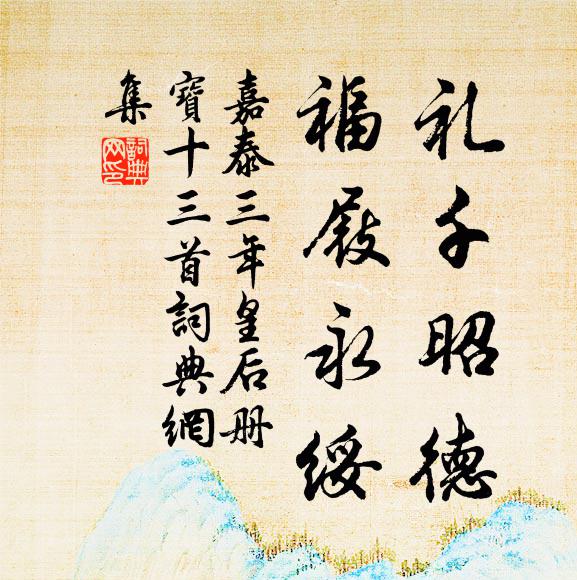 礼千昭德
福履永綏
嘉泰三年皇后册
寶十三首詞典網
集
詞典
网印